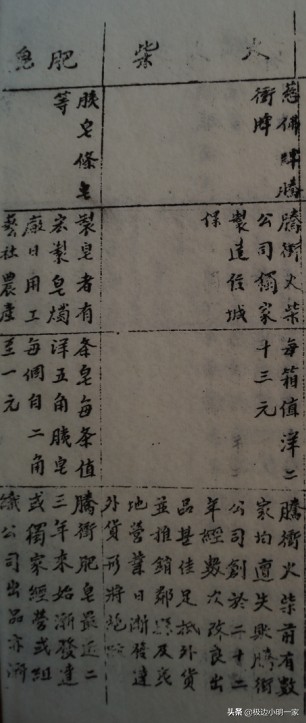 火柴
慈佛牌騰
衝牌
騰衝火柴
公司獨家
製造住城
保
每箱值洋二
十三元
騰衝火柴前有數
家均遭失敗騰衝
公司創於二十二
年經數次改良出
品甚佳足抵外貨
並推銷鄰縣及夷
地營業日漸發達
外貨形將絕
肥皂
胰皂條皂
等
製皂者有
宏製皂燭
廠日用工
藝社農產
条皂每条值
洋五角胰皂
每個自二角
至一元
騰衝肥皂最近二
三年來始漸發達
或獨家經營或組
織公司出品亦漸
头条 @极边小明一家